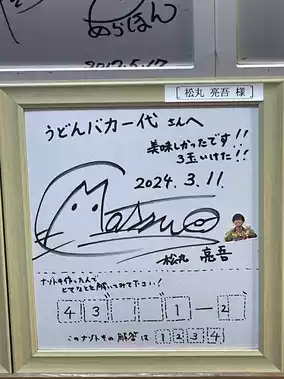 めらほん
2017.5.17
[ 松丸 亮吾 様 ]
うどんバカ一代 さんへ
美味しかったです!!
3玉いけた!!
2024.3.11.
Matsu
松丸 亮吾
ナゾトキ作ったんで
どなたさまも解いてみて下さい!
4 3 1 ー 2
このナゾトキの解答は 1 2 3 4